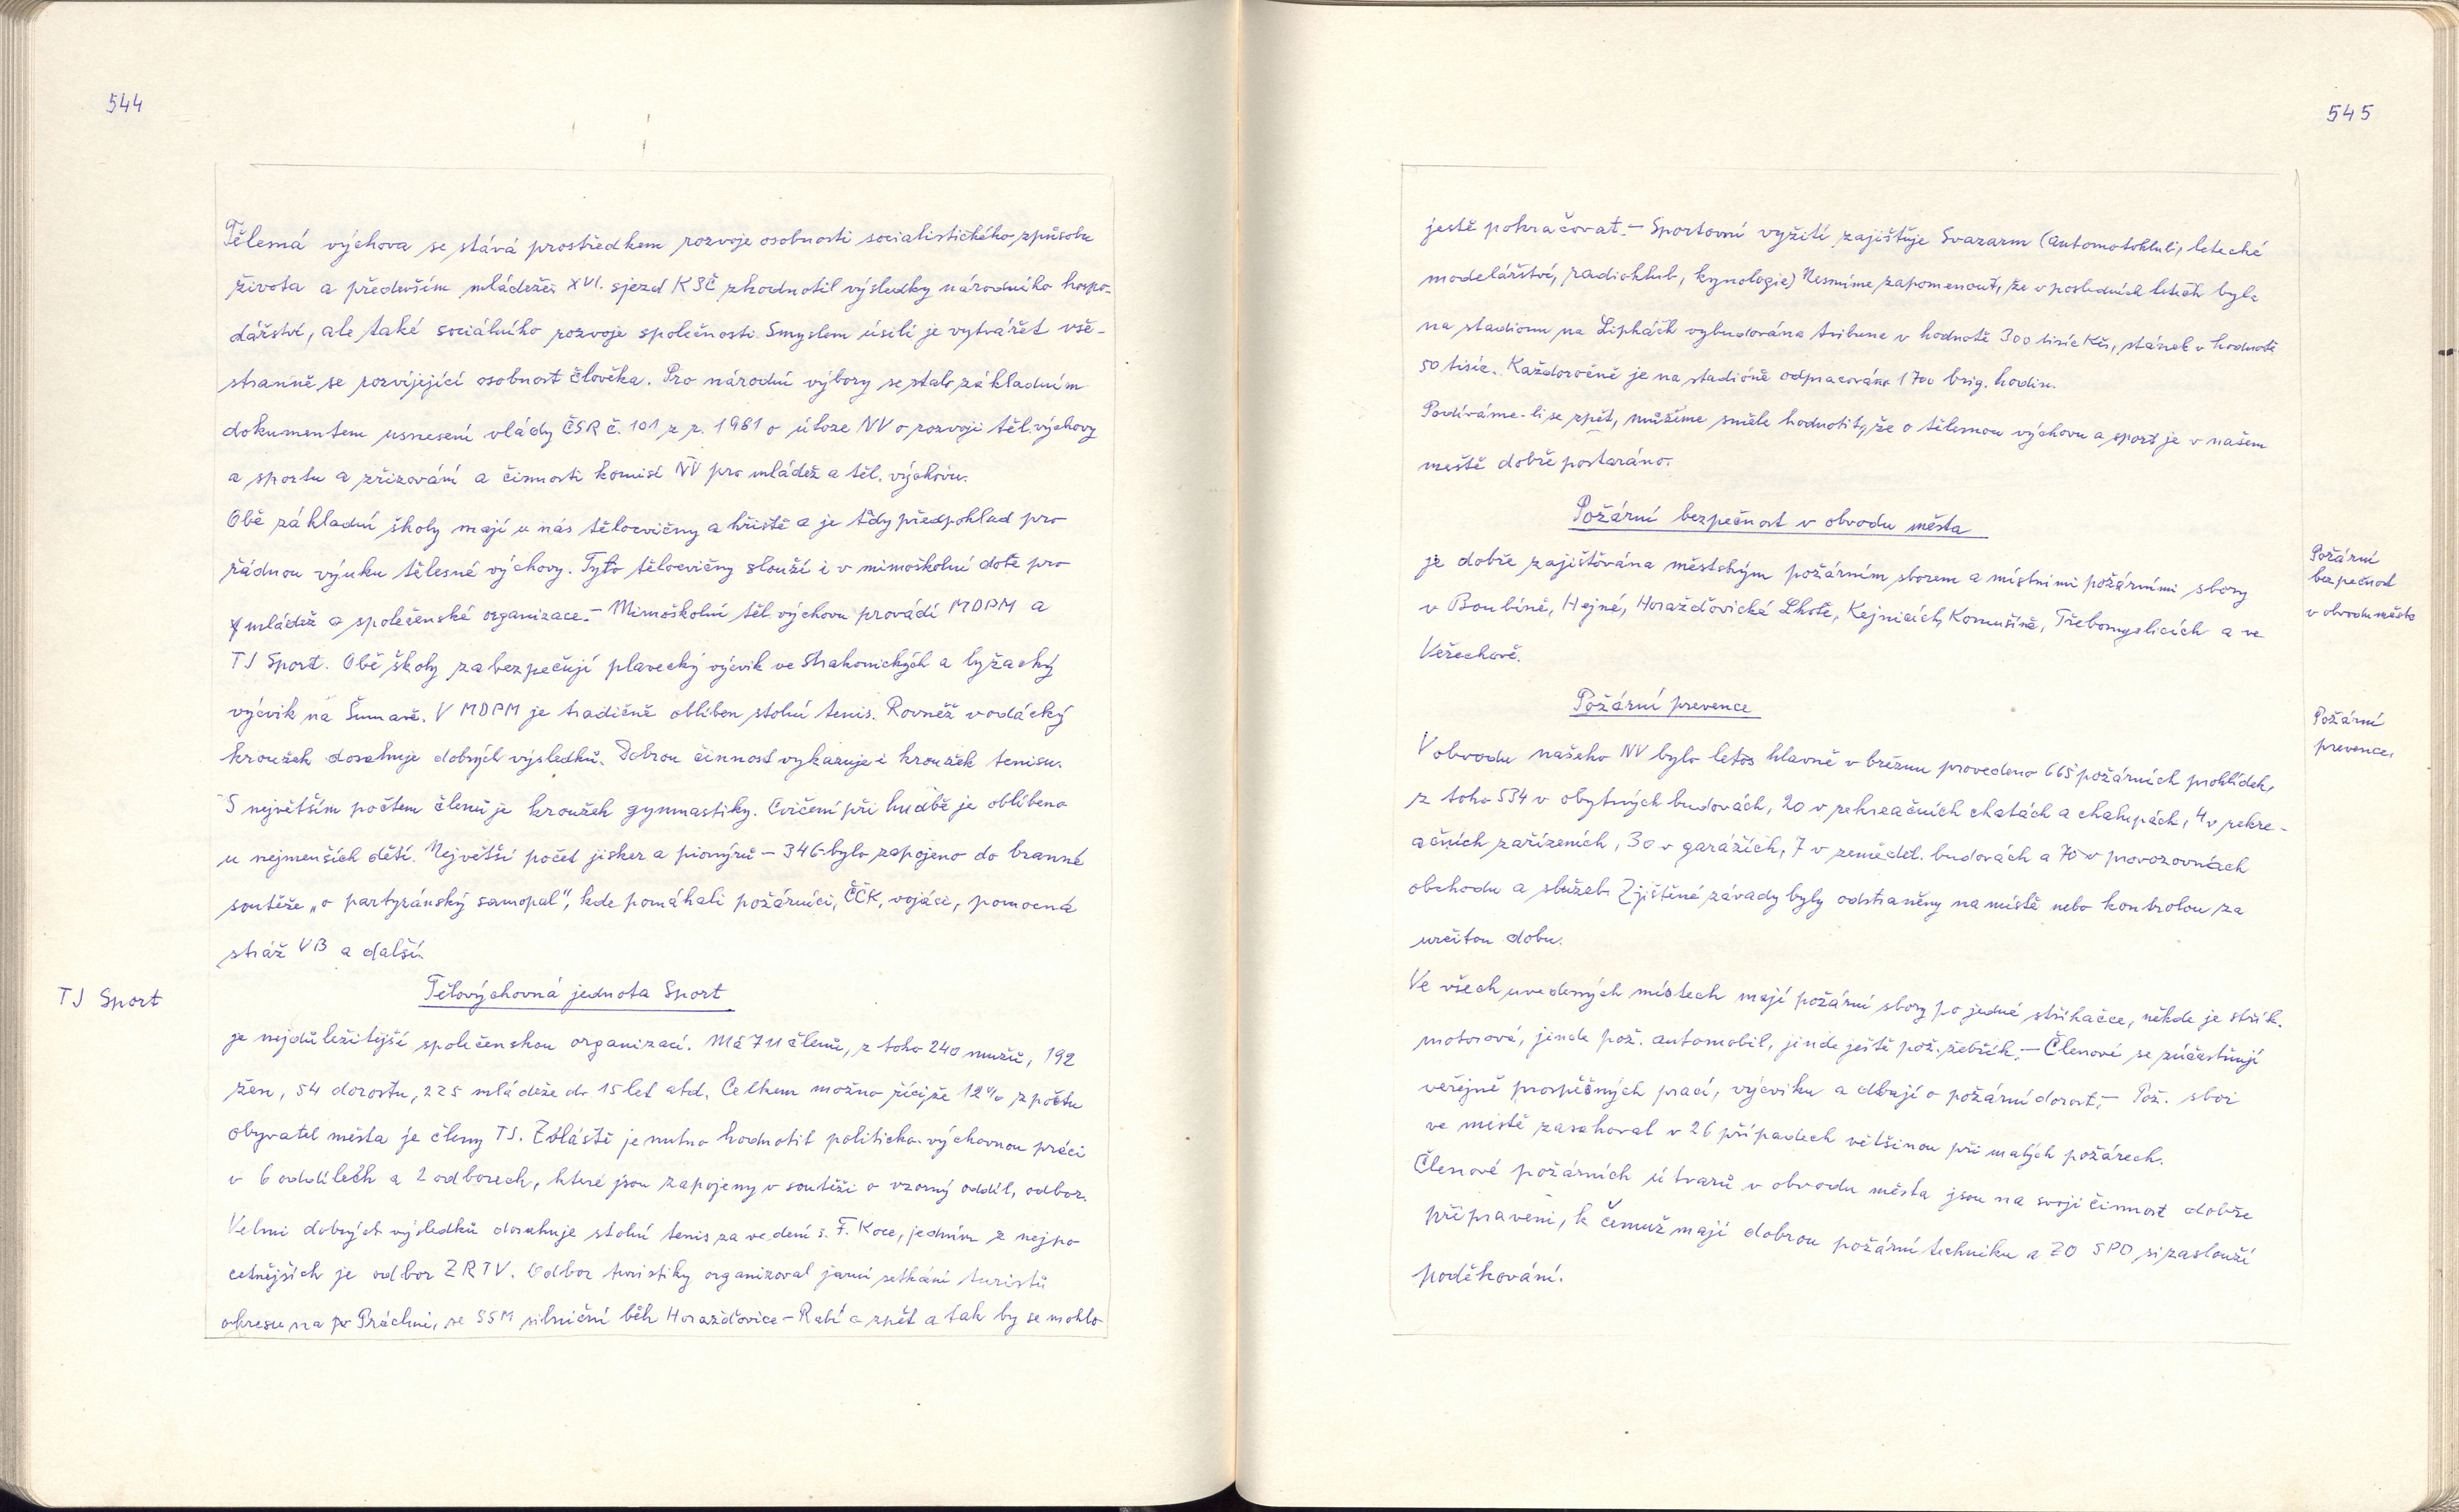 544
Tělesná výchova se stává prostředkem rozvoje osobnosti socialistického způsobu
života a především mládeže. XVI. sjezd KSČ zhodnotil výsledky národního hospo-
dářství, ale také sociálního rozvoje společnosti. Smyslem úsilí je vytvářet vše-
stranně se rozvíjející osobnost člověka. Pro národní výbory se stalo základním
dokumentem usnesení vlády ČSR č. 101 z r. 1981 o úloze NV o rozvoji těl. výchovy
a sportu a zřizování a činnosti komisí NV pro mládež a těl. výchovu.
Obě základní školy mají u nás tělocvičny a hřiště a je tedy předpoklad pro
řádnou výuku tělesné výchovy. Tyto tělocvičny slouží i v mimoškolní době pro
mládež a společenské organizace. – Mimoškolní těl. výchovu provádí MDPM a
TJ Sport. Obě školy zabezpečují plavecký výcvik ve Strakonických a lyžacký
výcvik na Šumavě. V MDPM je tradičně oblíben stolní tenis. Rovněž vodácký
kroužek dosahuje dobrých výsledků. Dobrou činnost vykazuje i kroužek tenisu.
S největším počtem členů je kroužek gymnastiky. Cvičení při hudbě je oblíbeno
u nejmenších dětí. Největší počet jisker a pionýrů – 346 bylo zapojeno do branné
soutěže „o partyzánský samopal“, kde pomáhali požárníci, ČČK, vojáci, pomocná
stráž VB a další.
TJ Sport
Tělovýchovná jednota Sport
je nejdůležitější společenskou organizací. Má 711 členů, z toho 240 mužů, 192
žen, 54 dorostu, 225 mládeže do 15 let atd. Celkem možno říci, že 12% z počtu
obyvatel města je členy TJ. Zvláště je nutno hodnotit politicko-výchovnou práci
v 6 oddílech a 2 odborech, které jsou zapojeny v soutěži o vzorný oddíl, odbor.
Velmi dobrých výsledků dosahuje stolní tenis za vedení s. F. Koce, jedním z nejpo
cetnějších je odbor ZRTV. Odbor turistiky organizoval jarní setkání turistů
okresu na Práchni, se SSM silniční běh Horažďovice – Rabí a zpět a tak by se mohlo
545
jestě pokračovat. – Sportovní vyžití zajišťuje Svazarm (automotoklub, letecké
modelářství, radioklub, kynologie) Nesmíme zapomenout, že v posledních letech byla
na stadionu na Lipkách vybudována tribuna v hodnotě 300 tisíc Kčs, stánek v hodnotě
50 tisíc. Každoročně je na stadióně odpracováno 1700 brig. hodin.
Podíváme-li se zpět, můžeme směle hodnotit, že o tělesnou výchovu a sport je v našem
městě dobře postaráno.
Požární bezpečnost v obvodu města
Požární
bezpečnost
v obvodu města
je dobře zajišťována městským požárním sborem a místními požárními sbory
v Boubíně, Hejné, Horažďovické Lhotě, Kejnicích, Komušíně, Třebomyslicích a ve
Veřechově.
Požární prevence
Požární
prevence.
V obvodu našeho NV bylo letos hlavně v březnu provedeno 665 požárních prohlídek,
z toho 534 v obytných budovách, 20 v rekreačních chatách a chalupách, 4 v rekre-
ačních zařízeních, 30 v garážích, 7 v zemědel. budovách a 70 v provozovnách
obchodu a služeb. Zjištěné závady byly odstraněny na místě nebo kontrolou za
určitou dobu.
Ve všech uvedených místech mají požární sbory po jedné stříkačce, někde je střík.
motorová, jinde pož. automobil, jinde ještě pož. žebřík. – Členové se zúčastňují
veřejně prospěšných prací, výcviku a dbají o požární dorost. – Pož. sbor
ve městě zasahoval v 26 případech většinou při malých požárech.
Členové požárních útvarů v obvodu města jsou na svoji činnost dobře
připraveni, k čemuž mají dobrou požární techniku a ZO SPO si zaslouží
poděkování.